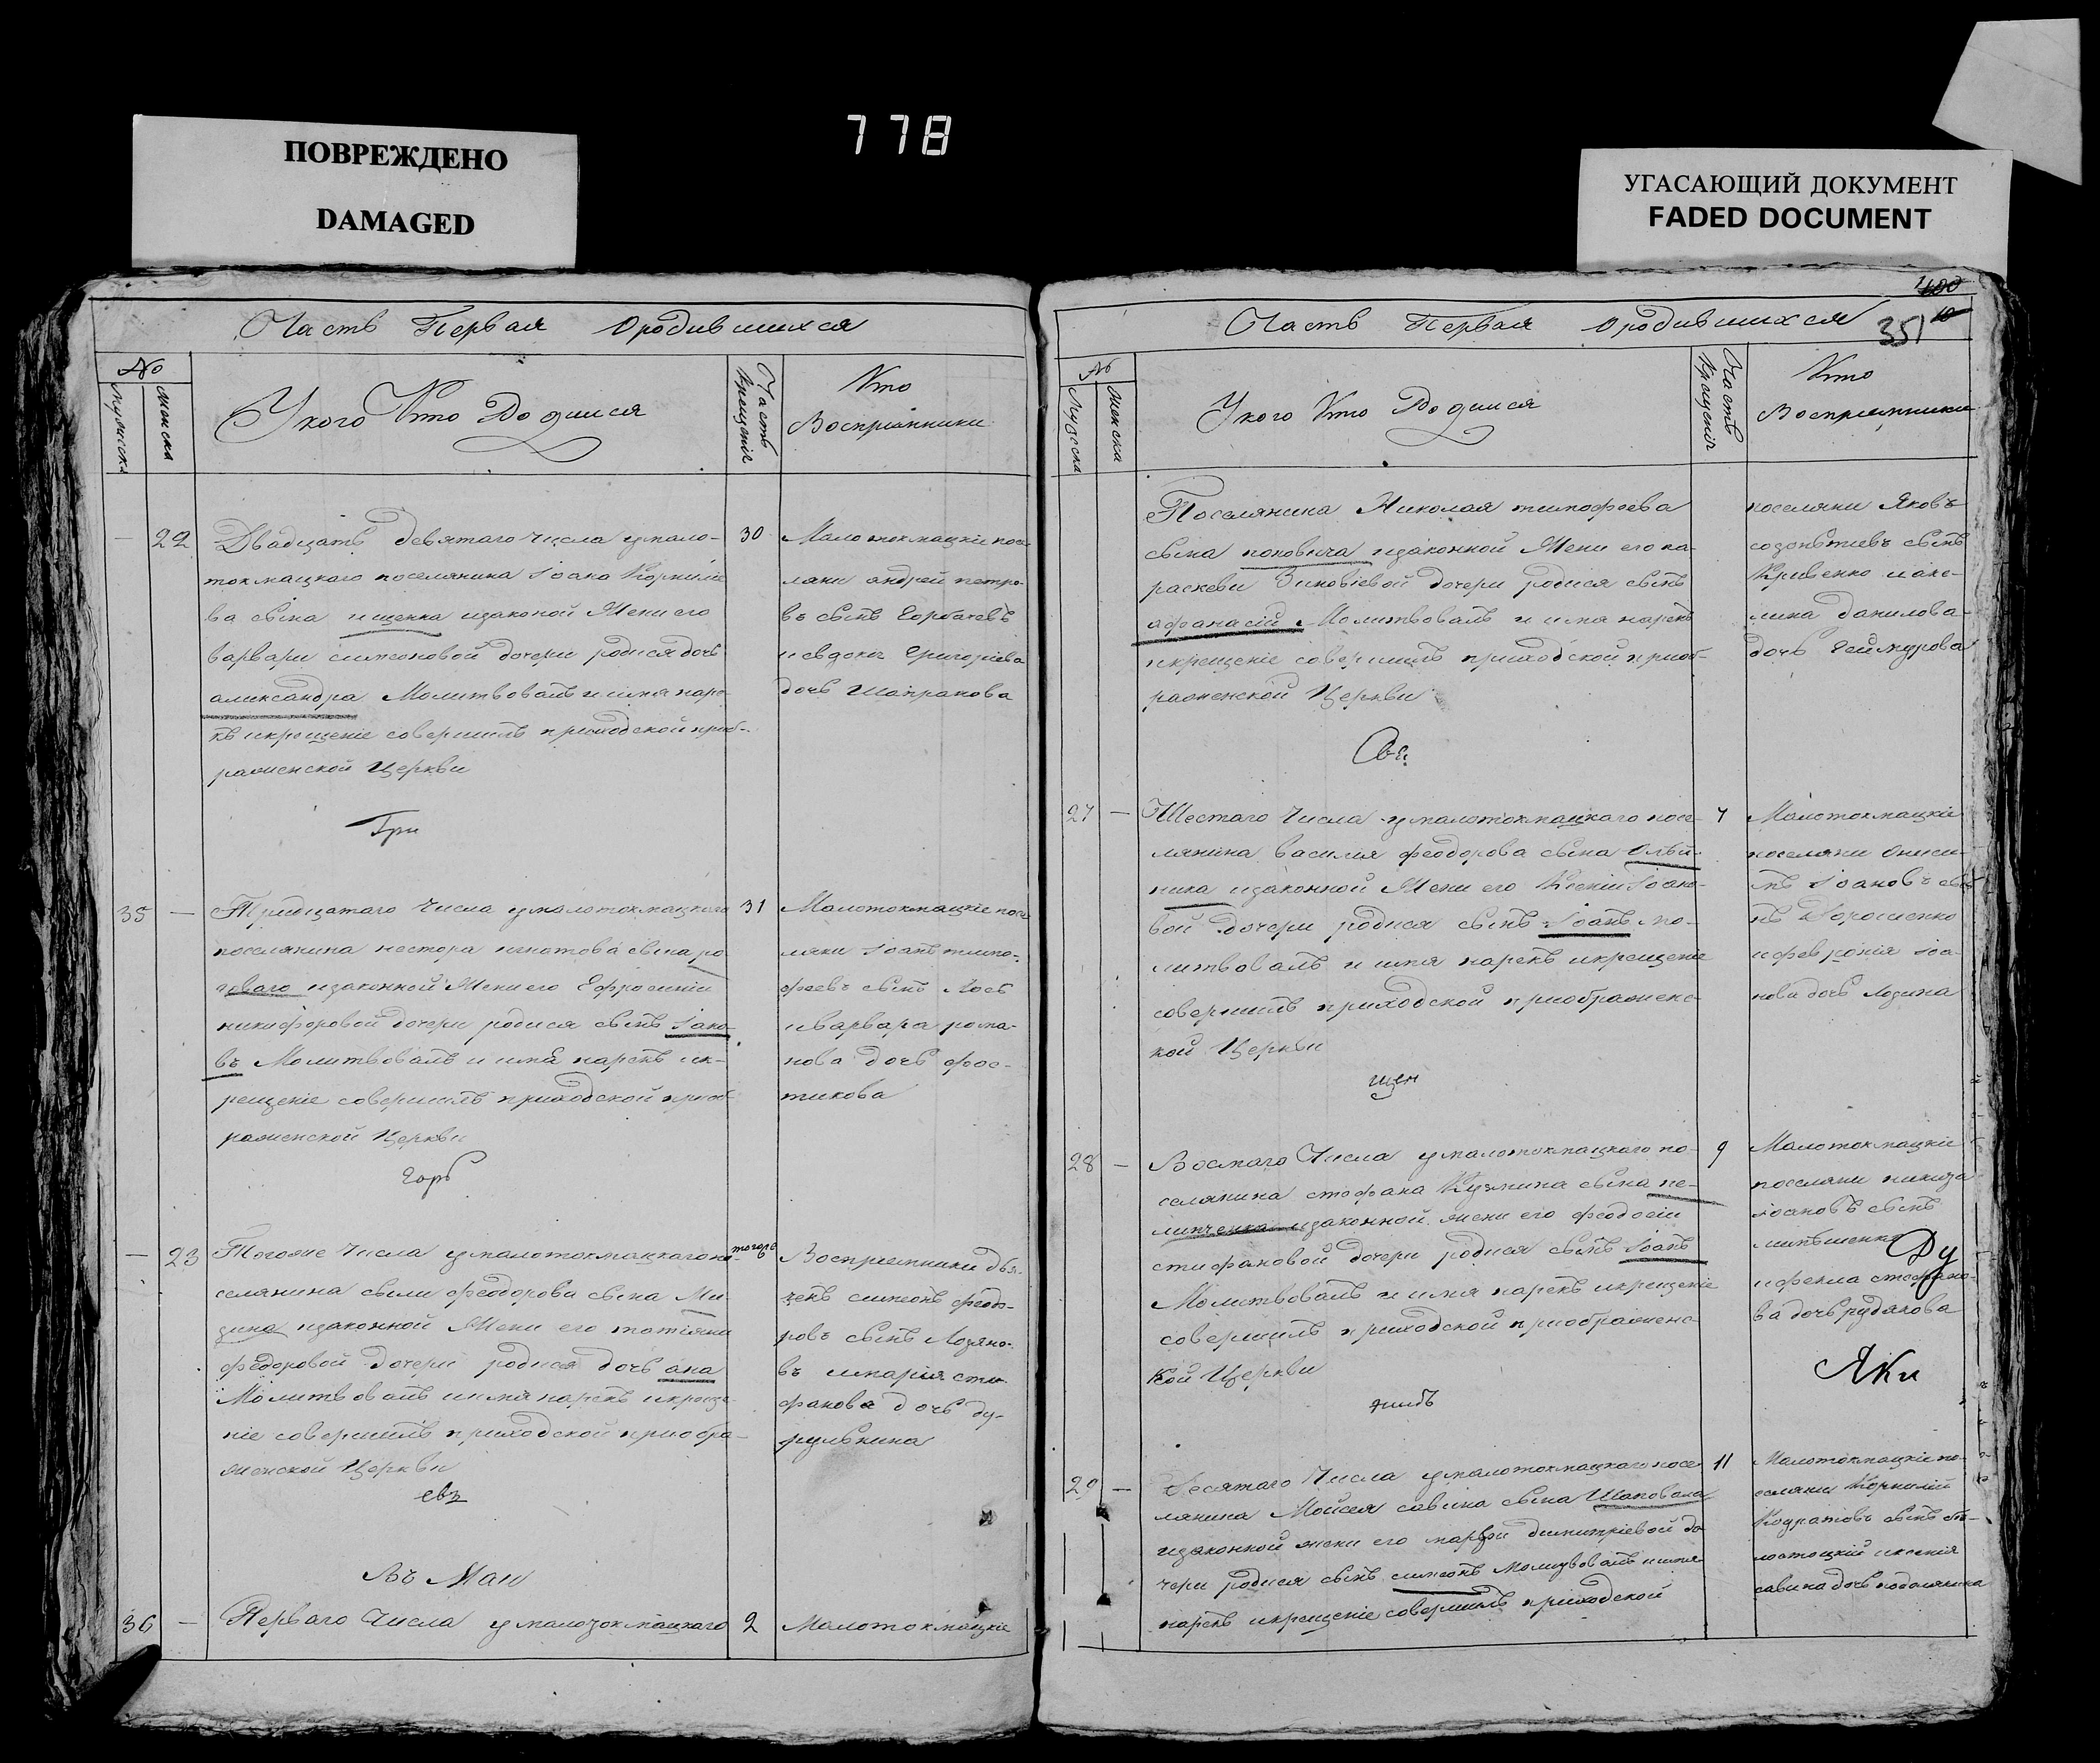 778
ПОВРЕЖДЕНО
DAMAGED
УГАСАЮЩИЙ ДОКУМЕНТ
FADED DOCUMENT
Часть Первая Ородившихся
№
мужеска
женска
Укого Кто Родился
Часть Крещенія
Кто
Воспріемники
22
Двадцать девятаго числа умало-
токмацкаго поселянина Іоана Корнилiе
ва сына ищенка изаконой Жени его
варвари симеоновой дочери родися дочь
александра Молитвовалъ и имя наре-
къ икрещеніе совершилъ приходской преоб-
раженской Церкви
30
Мало токмацкіе посе
ляни андрей петро-
въ сынъ Горбачевъ
иевдокія Григоріева
дочь Шапранова
Гри
35
Тридцатаго числа умалотокмацкаго
поселянина нестора игнатова сына ро
говаго изаконной Жени его Ефросиніи
никифоровой дочери родися сынъ Іако-
въ Молитвовалъ и имя нарекъ ик-
рещеніе совершилъ приходской преоб
раженской Церкви
31
Малотокмацкіе посе
ляни Іоанъ тимо-
феевъ сынъ Лось
иварвара рома-
нова дочь фос-
тикова
Горб
23
Тогоже числа умалотокмацкаго по-
селянина феодорова сына Ми-
зина изаконной Жени его татіяни
федоровой дочери родися дочь ана
Молитвовалъ иимя нарекъ икреще-
ніе совершилъ приходской преобра-
женской Церкви
тогоже
Воспріемники дья-
чекъ симеонъ феодо-
ровъ сынъ Лозяно-
въ имарія сте-
фанова дочь ду-
рулькина
евд
Въ Маи
36
Перваго числа умалотокмацкаго
2
Малотокмацкіе
180
10
351
Часть Первая Ородившихся
№
Мужеска
женска
Укого Кто Родился
Часть Крещенія
Кто
Воспріемники
Поселянина Николая тимофеева
сына поповича изаконной Жени его па-
раскеви Зиновіевой дочери родися сынъ
афанасій Молитвовалъ и имя нарекъ
икрещеніе совершилъ приходской преоб-
раженской Церкви
поселяни Яковъ
созонтіевъ сынъ
Кривенко иаке-
лина данилова
дочь Геймурова
27
Шестаго числа умалотокмацкаго посе-
лянина василія феодорова сына Олей-
ника изаконной Жени его Ксеніи Іоано-
вой дочери родися сынъ Іоанъ мо-
литвовалъ и имя нарекъ икрещеніе
совершилъ приходской преображенс-
кой Церкви
7
Малотокмацкіе
поселяниОниси-
мъ Іоановъ сы-
нъ Дорошенко
ифевронія Іоа-
нова дочь Лозина
щен
28
Восмаго числа умалотокмацкаго по-
селянина стефана Кузмина сына пе-
липченка изаконной жени его феодосіи
стифановой дочери родися сынъ Іоанъ
Молитвовалъ и имя нарекъ икрещеніе
совершилъ приходской преображенс-
кой Церкви
9
Малотокмацкіе
поселяни никита
іоановъ сынъ
Ду
ифекла стефано-
ва дочь рудакова
Яки
29
Десятаго числа умалотокмацкаго посе
лянина Мойсея савина сына Шаповала
изаконной жени его марфи димитріевой до
чери родися сынъ симеонъ молитвовалъ иимя
нарекъ икрещеніе совершилъ приходской
11
Малотокмацкіе по-
селяни Корнилій
Кодратовъ сынъ бе-
лостоцкій иксенія
савина дочь подолянина